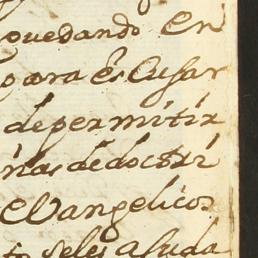 quedando en
para escusar
de permitir
nas de doctri
evangelico
to seles ayuda